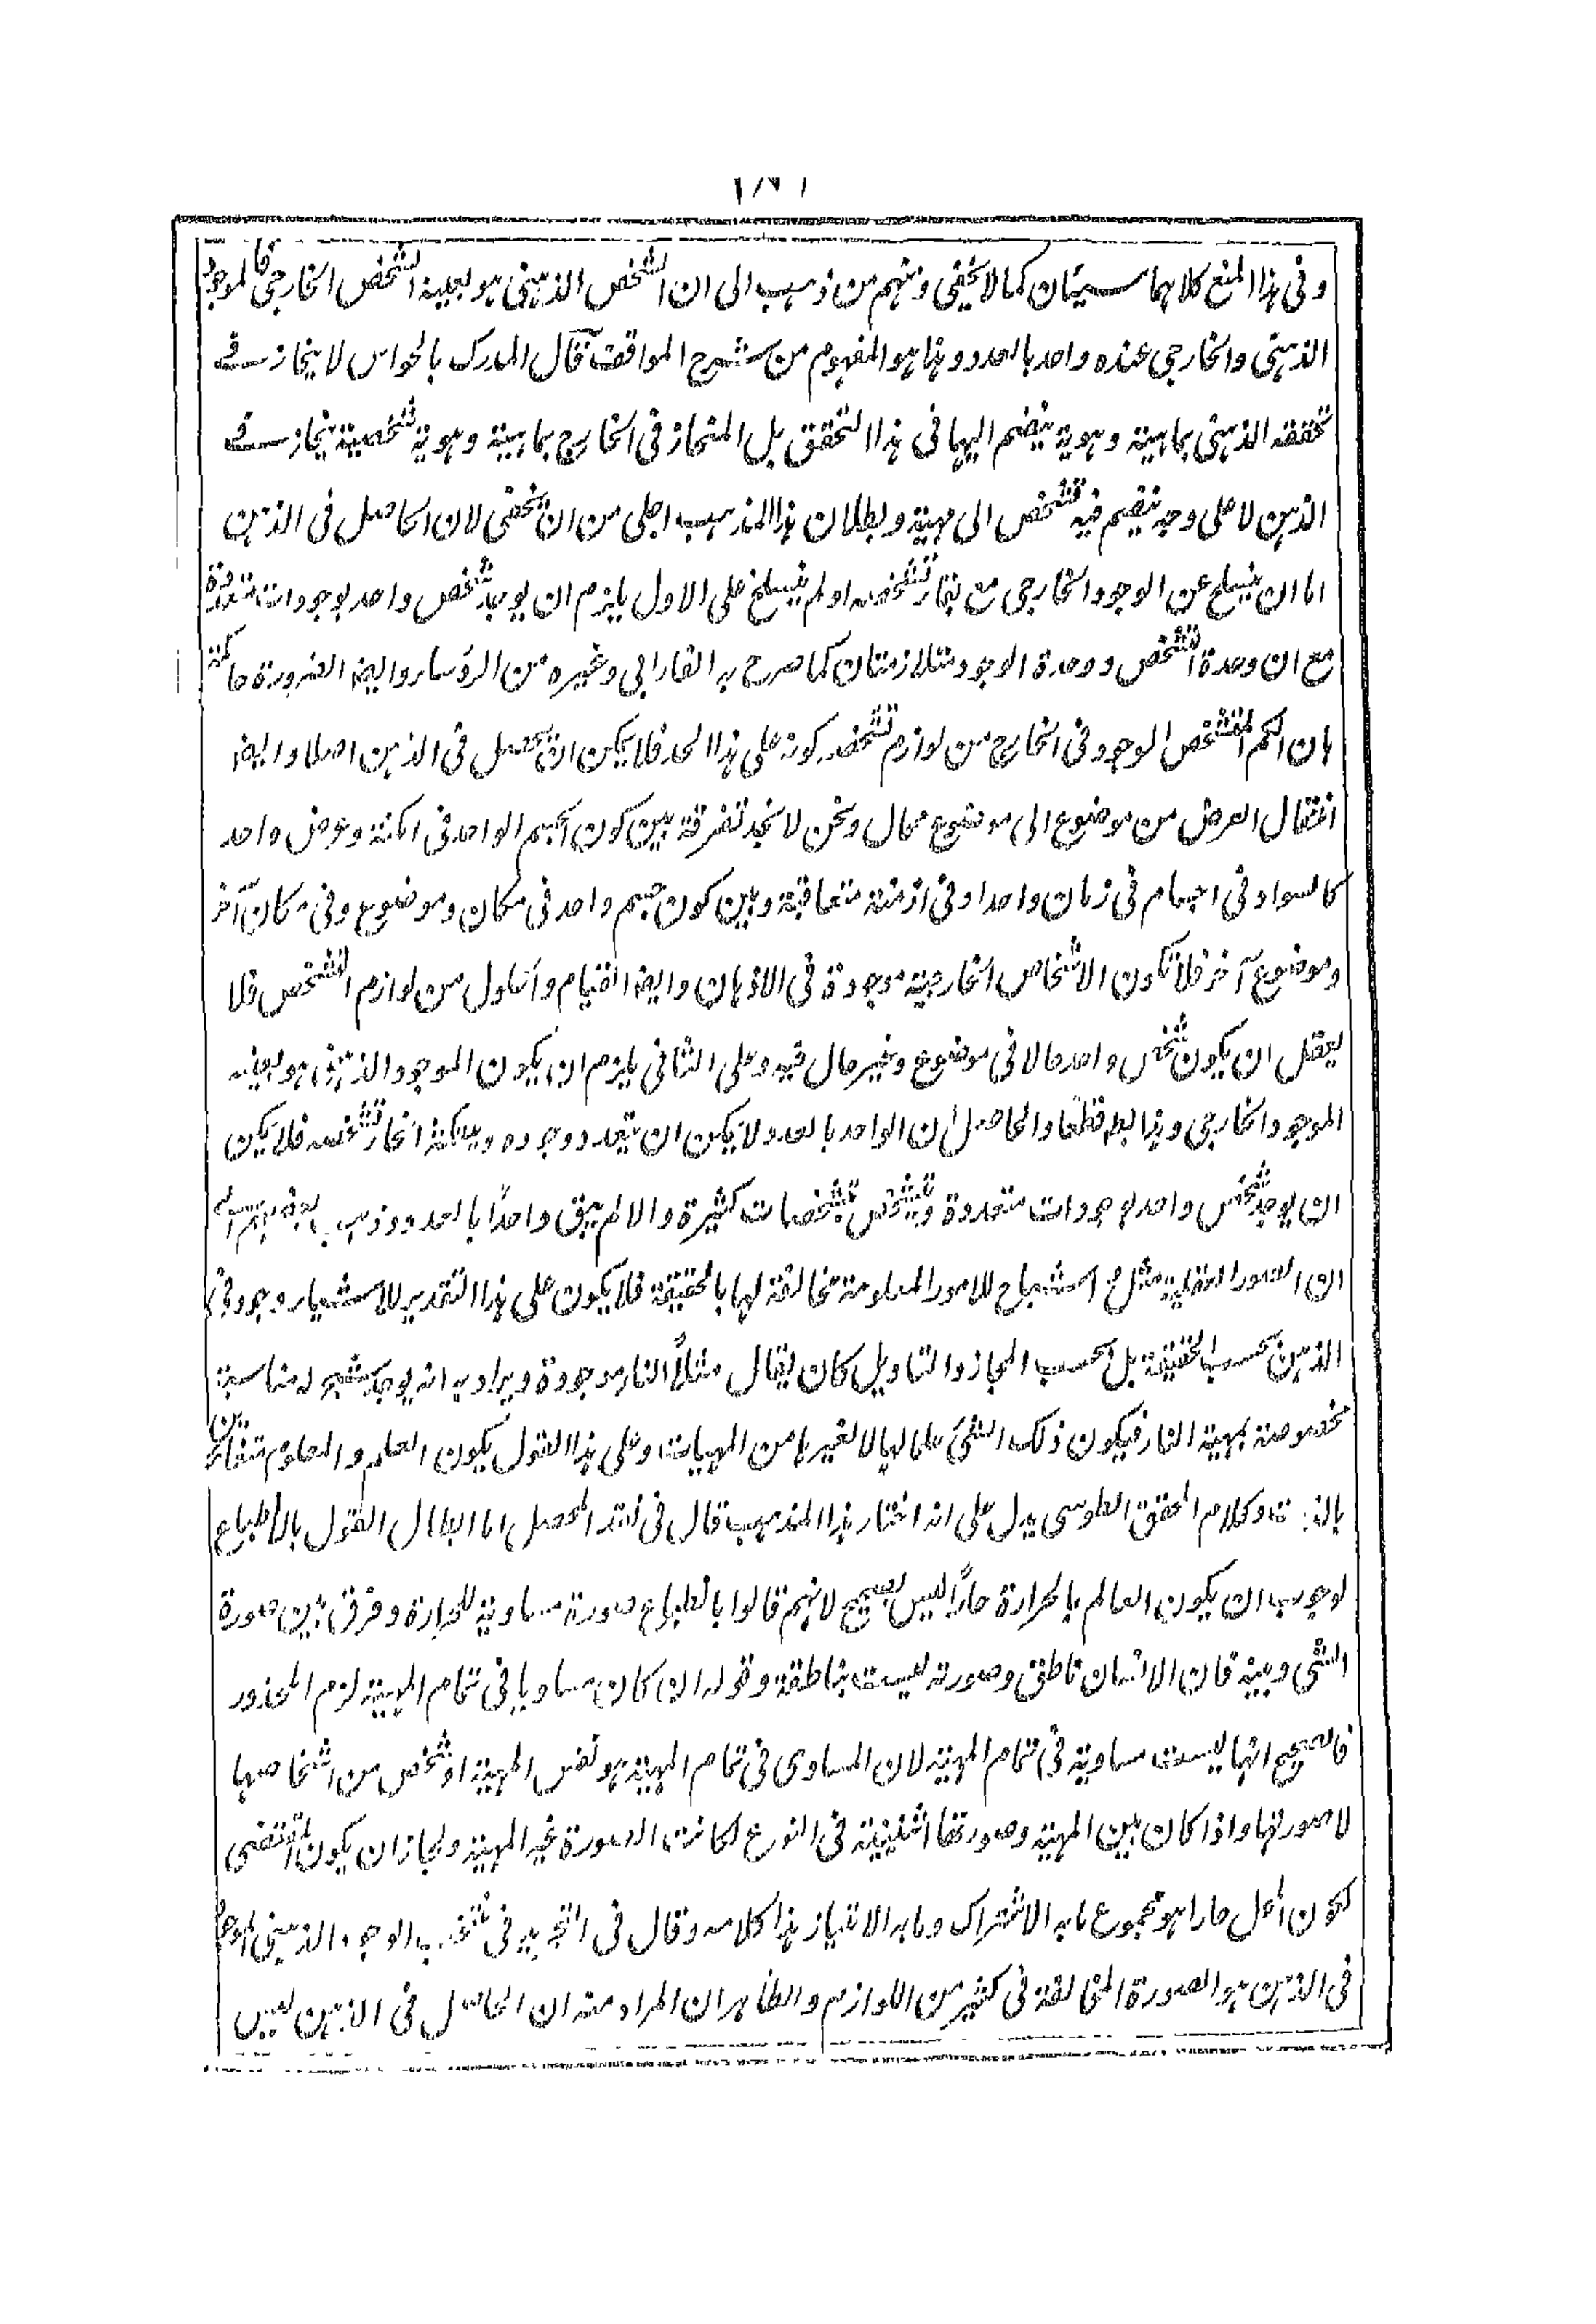 وفى هذا المنع كلاهما سيئان كما لا يخفى ومنهم من ذهب الى ان الشخص الذهنى هو بعينه الشخص الخارجى فالموجود
الذهنى والخارجى عنده واحد بالعدد وهذا هو المفهوم من شرح المواقف قال المدرك بالحواس لا ينحاز فے
تحققه الذهنى بماهية وهوية ينضم اليها فى هذا التحقق بل المنحاز فى الخارج بماهية وهوية شخصية ينحاز فے
الذهن لا على وجه ينضم فيه تشخص الى مهية وبطلان هذا المذهب اجلى من ان يخفى لان الحاصل فى الذهن
اما ان ينسلخ عن الوجود الخارجى مع بقاء تشخصه او لم ينسلخ على الاول يلزم ان يوجد شخص واحد بوجودات متعددة
مع ان وحدة التشخص ووحدة الوجود متلازمتان كما صرح به الفارابى وغيره من الرؤساء وايضا الضرورة حاكمة
بان الكم المتشخص الموجود فى الخارج من لوازم تشخصه كونه على هذا الحد فلا يمكن ان يحصل فى الذهن اصلا وايضا
انتقال العرض من موضوع الى موضوع محال ونحن لا نجد تفرقة بين كون الجسم الواحد فى امكنة وعرض واحد
كالسواد فى اجسام فى زمان واحد او فى ازمنة متعاقبة وبين كون جسم واحد فى مكان وموضوع وفى مكان آخر
وموضوع آخر فلا تكون الاشخاص الخارجية موجودة فى الاذهان وايضا القيام والحلول من لوازم التشخص فلا
يعقل ان يكون شخص واحد حالا فى موضوع وغير حال فيه وعلى الثانى يلزم ان يكون الموجود الذهنى هو بعينه
الموجود الخارجى وهذا بط قطعا والحاصل ان الواحد بالعدد لا يمكن ان يتعدد وجوده ويمكنه انحاز تشخصه فلا يمكن
ان يوجد شخص واحد بوجودات متعددة ويتشخص بتشخصات كثيرة والا لم يبق واحدًا بالعدد وذهب بعضهم الى
ان الصور العقلية مثل واشباح للامور المعلومة مخالفة لها بالحقيقة فلا يكون على هذا التقدير للاشياء وجود فى
الذهن بحسب الحقيقة بل بحسب المجاز والتاويل كان يقال مثلاً النار موجودة ويراد به انه يوجد شبح له مناسبة
مخصوصة بمهية النار فيكون ذلك الشئ علما لها لا لغيرها من المهيات وعلى هذا القول يكون العلم والمعلوم متغائرين
بالذات وكلام المحقق الطوسى يدل على انه اختار هذا المذهب قال فى نقد المحصل اما ابطال القول بالانطباع
لوجوب ان يكون العالم بالحرارة حارًا ليس بصحيح لانهم قالوا بانطباع صورة مساوية للحرارة وفرق بين صورة
الشئ وبينه فان الانسان ناطق وصورته ليست بناطقة وقوله ان كان مساويا فى تمام المهية لزم المحذور
فالصحيح انها ليست مساوية فى تمام المهية لان المساوى فى تمام المهية هو نفس المهية او شخص من اشخاصها
لا صورتها واذا كان بين المهية وصورتها اثنينية فى النوع لكانت الصورة غير المهية ولجاز ان يكون المقتضى
لكون المحل حارا هو مجموع ما به الاشتراك وما به الامتياز هذا كلامه وقال فى التجريد فى بحث الوجود الذهنى الموجود
فى الذهن هو الصورة المخالفة فى كثير من اللوازم والظاهر ان المراد منه ان الحاصل فى الذهن ليس